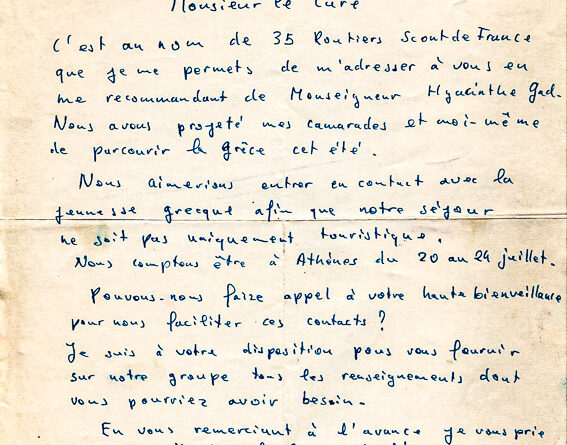 Monsieur le Curé
C'est au nom de 35 Routiers Scout de France
que je me permets de m'adresser à vous en
me recommandant de Monseigneur Hyacinthe Gad.
Nous avons projeté mes camarades et moi-même
de parcourir la Grèce cet été.
Nous aimerions entrer en contact avec la
jeunesse grecque afin que notre séjour
ne soit pas uniquement touristique.
Nous comptons être à Athènes du 20 au 24 juillet.
Pouvons-nous faire appel à votre haute bienveillance
pour nous faciliter ces contacts ?
Je suis à votre disposition pour vous fournir
sur notre groupe tous les renseignements dont
vous pourriez avoir besoin.
En vous remerciant à l'avance je vous prie